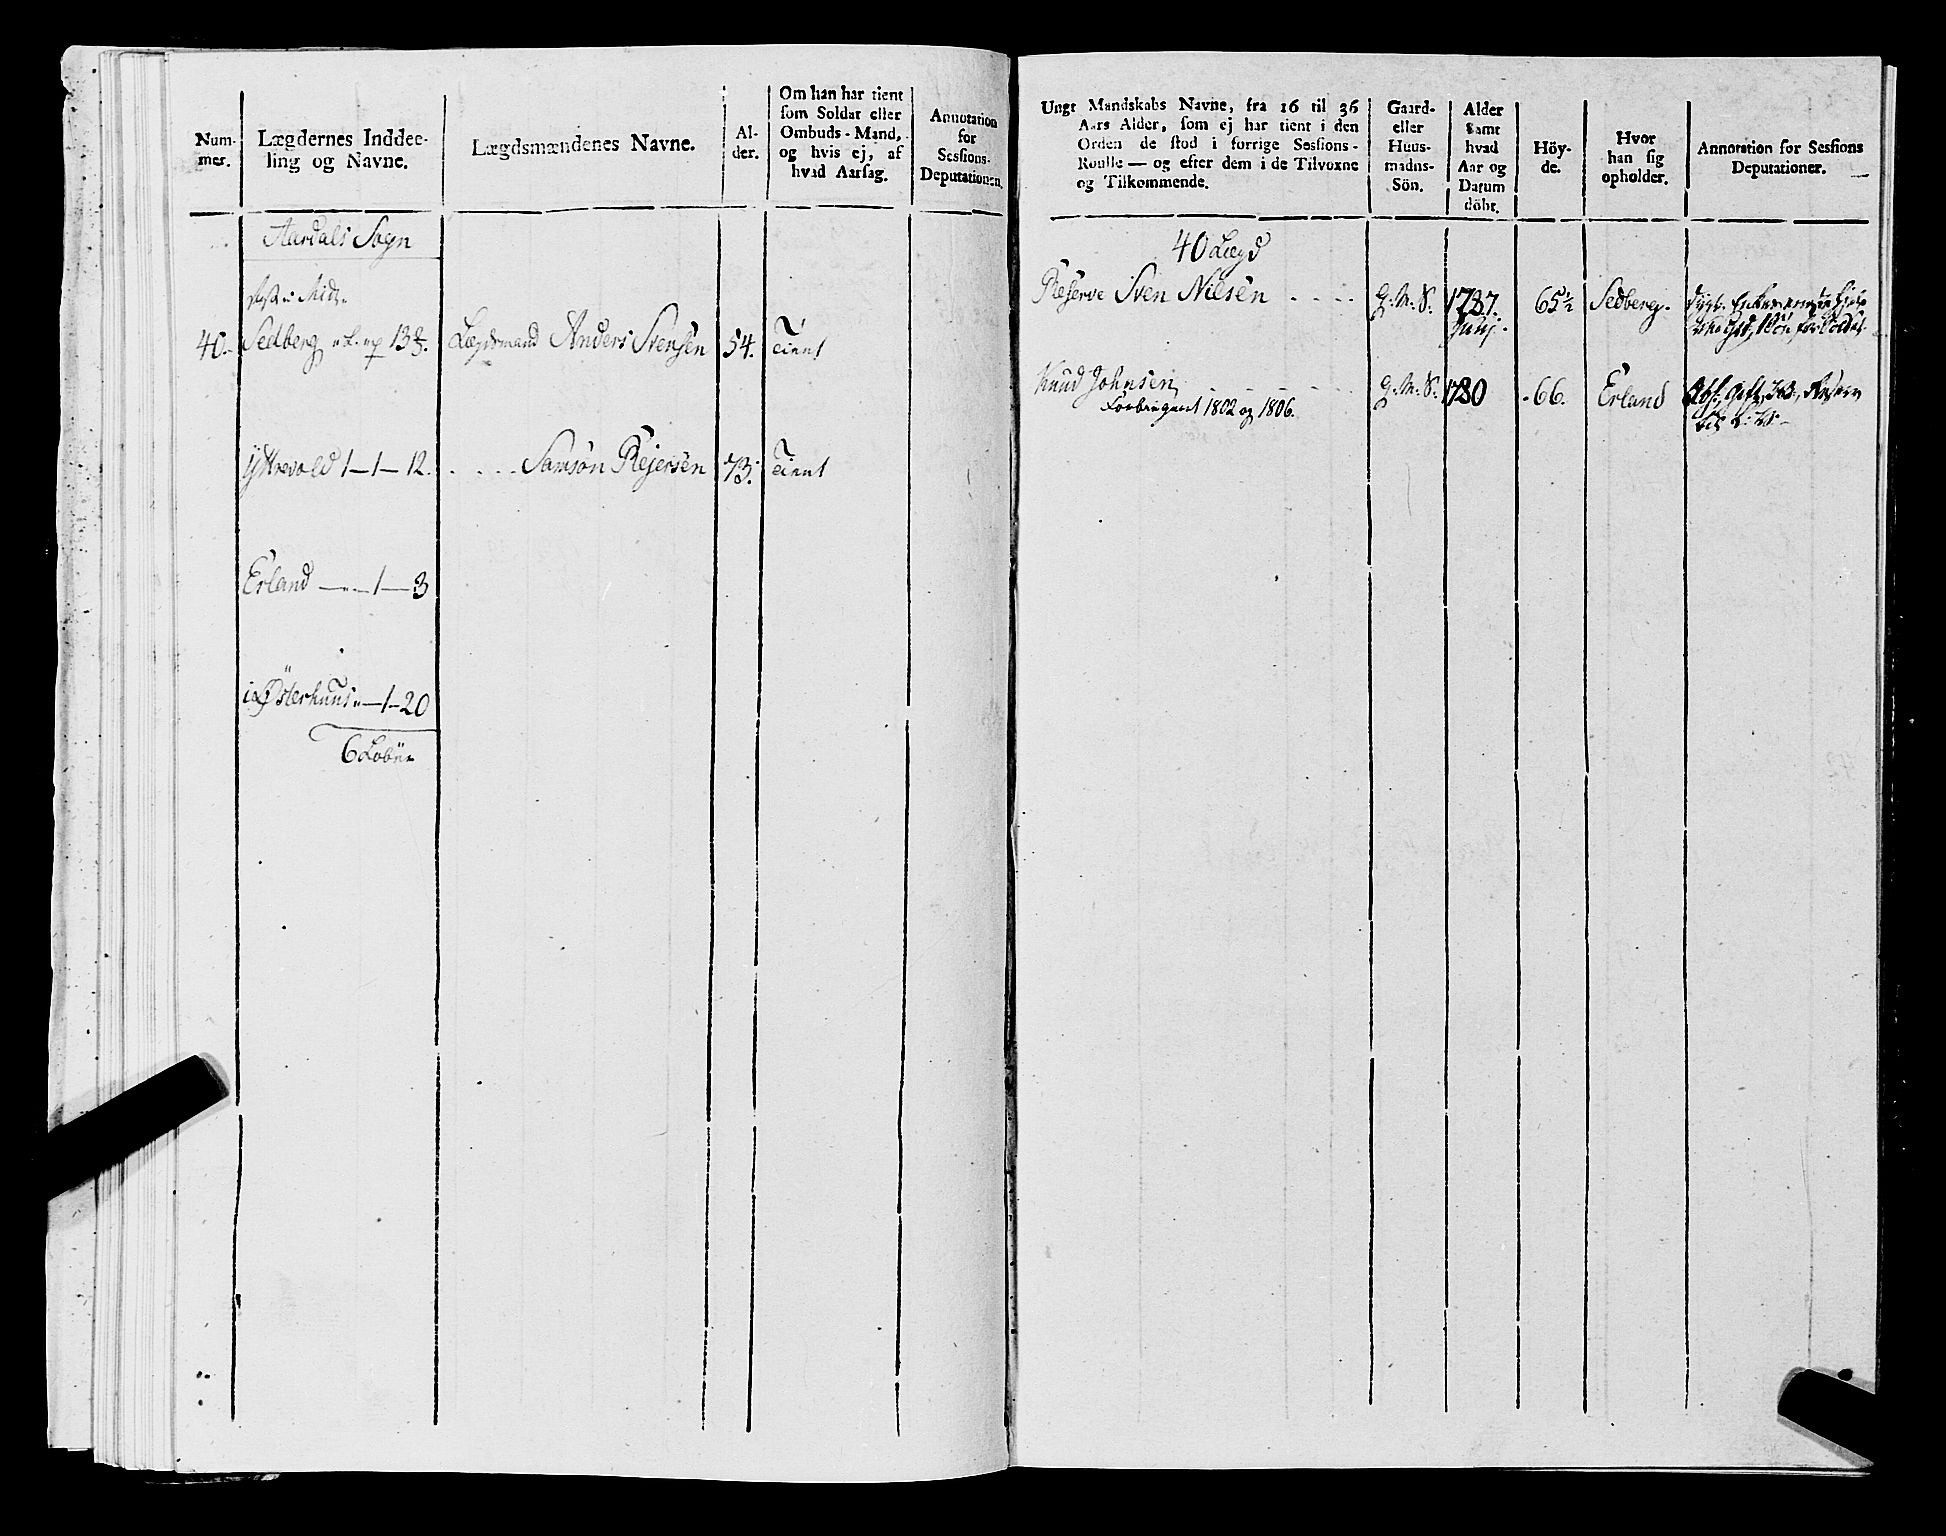 Num-
mer.
Lægdernes Inddee-
ling og Navne.
Lægdsmændenes Navne.
Al-
der.
Om han har tient
som Soldat eller
Ombuds-Mand,
og hvis ej, af
hvad Aarsag.
Annotation
for
Sessions-
Deputationen.
Aardals Sogn
40.
Sedberg 13
Lægdsmand Anders Svensen
54.
Tient
Yttrevold 1-1-12.
Samsøn Rejersen
73.
Tient
Erland 1-3
Østerhuus 1-20
6 Løber
Ungt Mandskabs Navne, fra 16 til 36
Aars Alder, som ej har tient i den
Orden de stod i forrige Sessions-
Roulle — og efter dem i de Tilvoxne
og Tilkommende.
Gaard-
eller
Huus-
mands-
Sön.
Alder
samt
hvad
Aar og
Datum
döbt.
Höy-
de.
Hvor
han sig
opholder.
Annotation for Sessions
Deputationer.
40 Lægd
Reserve Sven Nilsen
G. M. S.
1787.
July.
65½
Sedberg.
Knud Johnsen
G. M. S.
1780
66.
Erland
Forbigaaet 1802 og 1806.